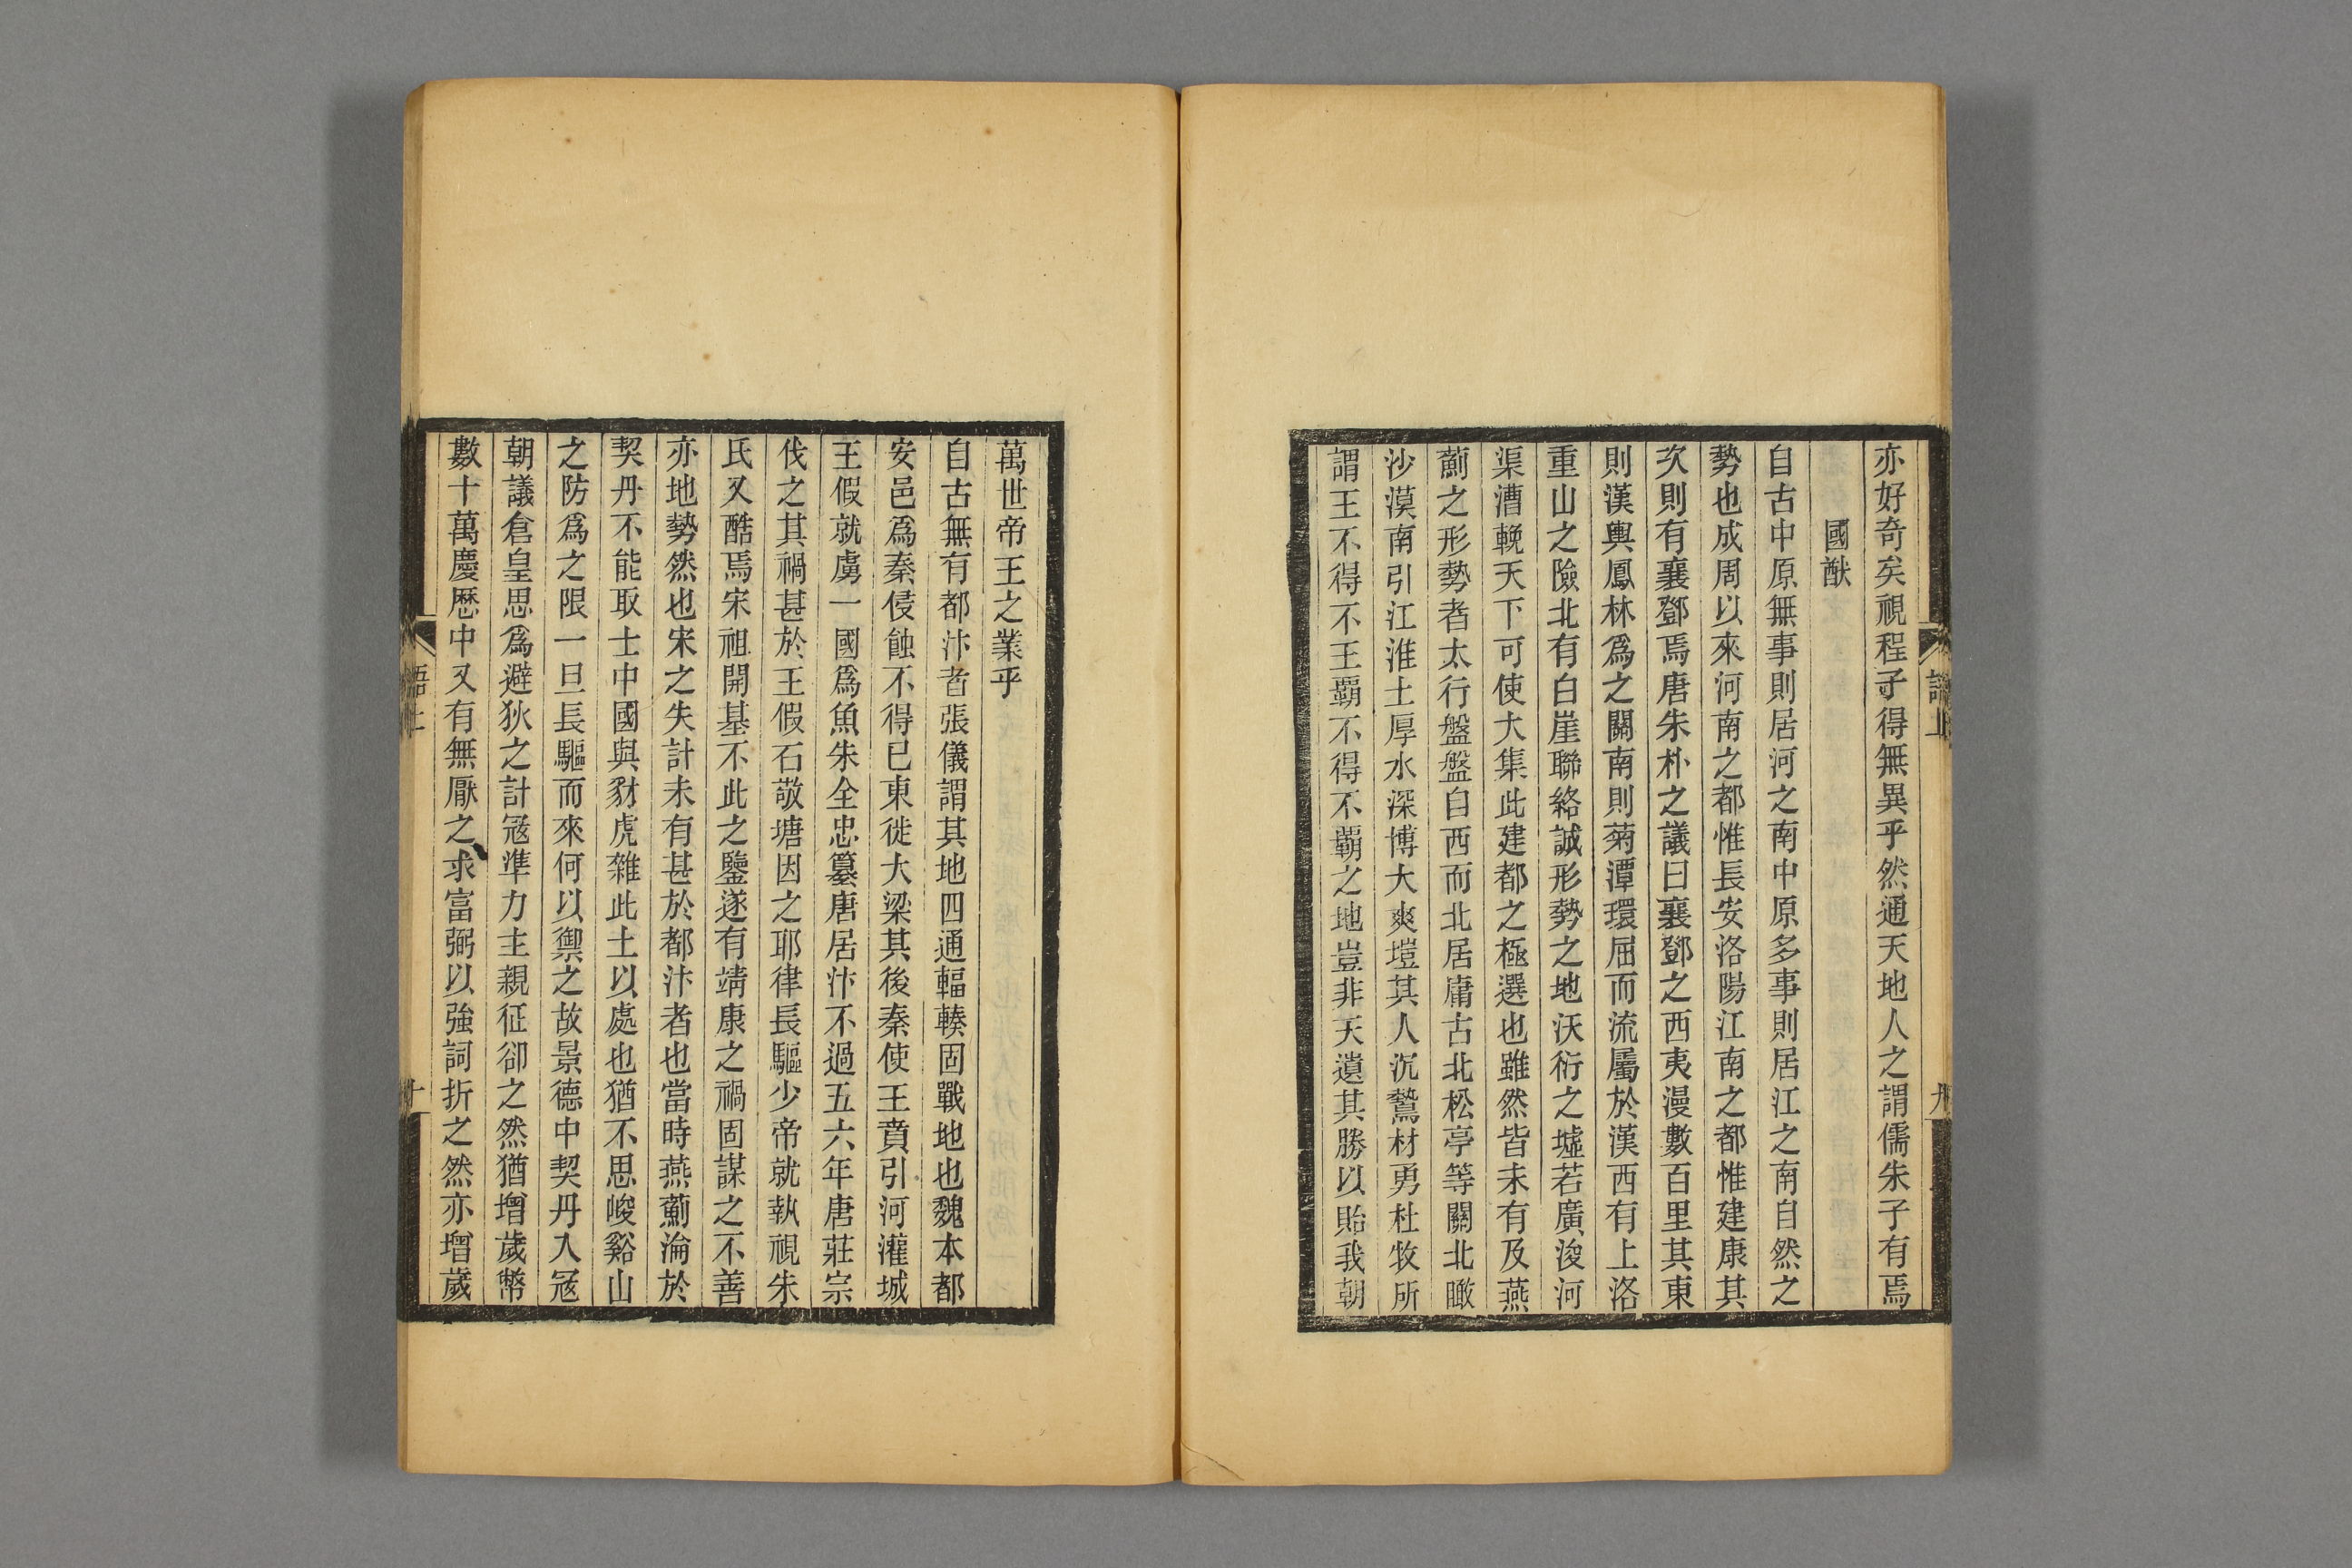 亦好奇矣視程子得無異乎然通天地人之謂儒朱子有焉
國猷
自古中原無事則居河之南中原多事則居江之南自然之
勢也成周以來河南之都惟長安洛陽江南之都惟建康其
次則有襄鄧焉唐朱朴之議曰襄鄧之西夷漫數百里其東
則漢輿鳳林為之關南則菊潭環屈而流屬於漢西有上洛
重山之險北有白崖聯絡誠形勢之地沃衍之墟若廣浚河
渠漕輓天下可使大集此建都之極選也雖然皆未有及燕
薊之形勢者太行盤盤自西而北居庸古北松亭等關北瞰
沙漠南引江淮土厚水深博大爽塏其人沉鷙材勇杜牧所
謂王不得不王覇不得不覇之地豈非天遺其勝以貽我朝
萬世帝王之業乎
自古無有都汴者張儀謂其地四通輻輳固戰地也魏本都
安邑爲秦侵蝕不得已東徙大梁其後秦使王賁引河灌城
王假就虜一國爲魚朱全忠簒唐居汴不過五六年唐莊宗
伐之其禍甚於王假石敬塘因之耶律長驅少帝就執視朱
氏又酷焉宋祖開基不此之鑒遂有靖康之禍固謀之不善
亦地勢然也宋之失計未有甚於都汴者也當時燕薊淪於
契丹不能取士中國與豺虎雜此土以處也猶不思峻谿山
之防爲之限一旦長驅而來何以禦之故景德中契丹入冦
朝議倉皇思爲避狄之計冦準力主親征卻之然猶增歲幣
數十萬慶歷中又有無厭之求富弼以強詞折之然亦增歲
語上
十